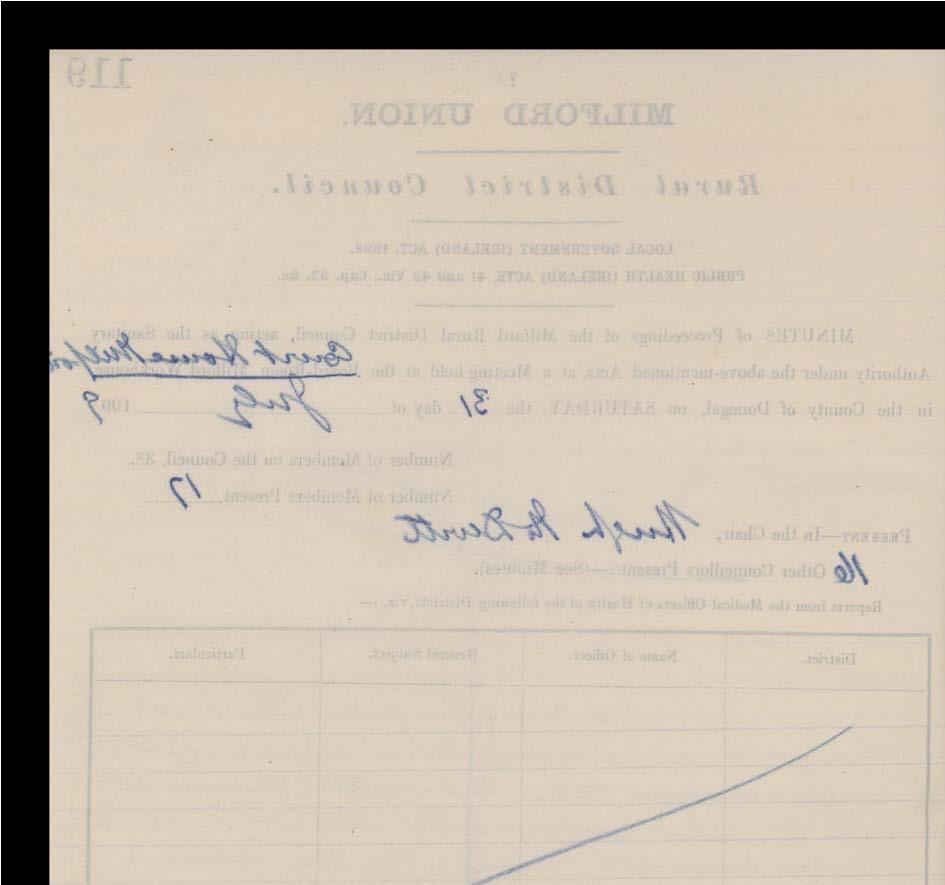 119
MILFORD UNION.
Rural District Council.
LOCAL GOVERNMENT (IRELAND) ACT, 1898.
PUBLIC HEALTH (IRELAND) ACTS, 41 and 42 Vic., Cap. 52, &c.
MINUTES of Proceedings of the Milford Rural District Council, acting as the Sanitary
Court House Milford
Authority under the above-mentioned Acts, at a Meeting held at the Board-Room Milford Workhouse,
in the County of Donegal, on SATURDAY, the 31 day of July 190 9
Number of Members on the Council, 38.
Number of Members Present, 17
PRESENT—In the Chair, Hugh McDevitt
16 Other Councillors Present:—(See Minutes).
Reports from the Medical Officers of Health of the following Districts, viz. :—
District. Name of Officer. General Subject. Particulars.